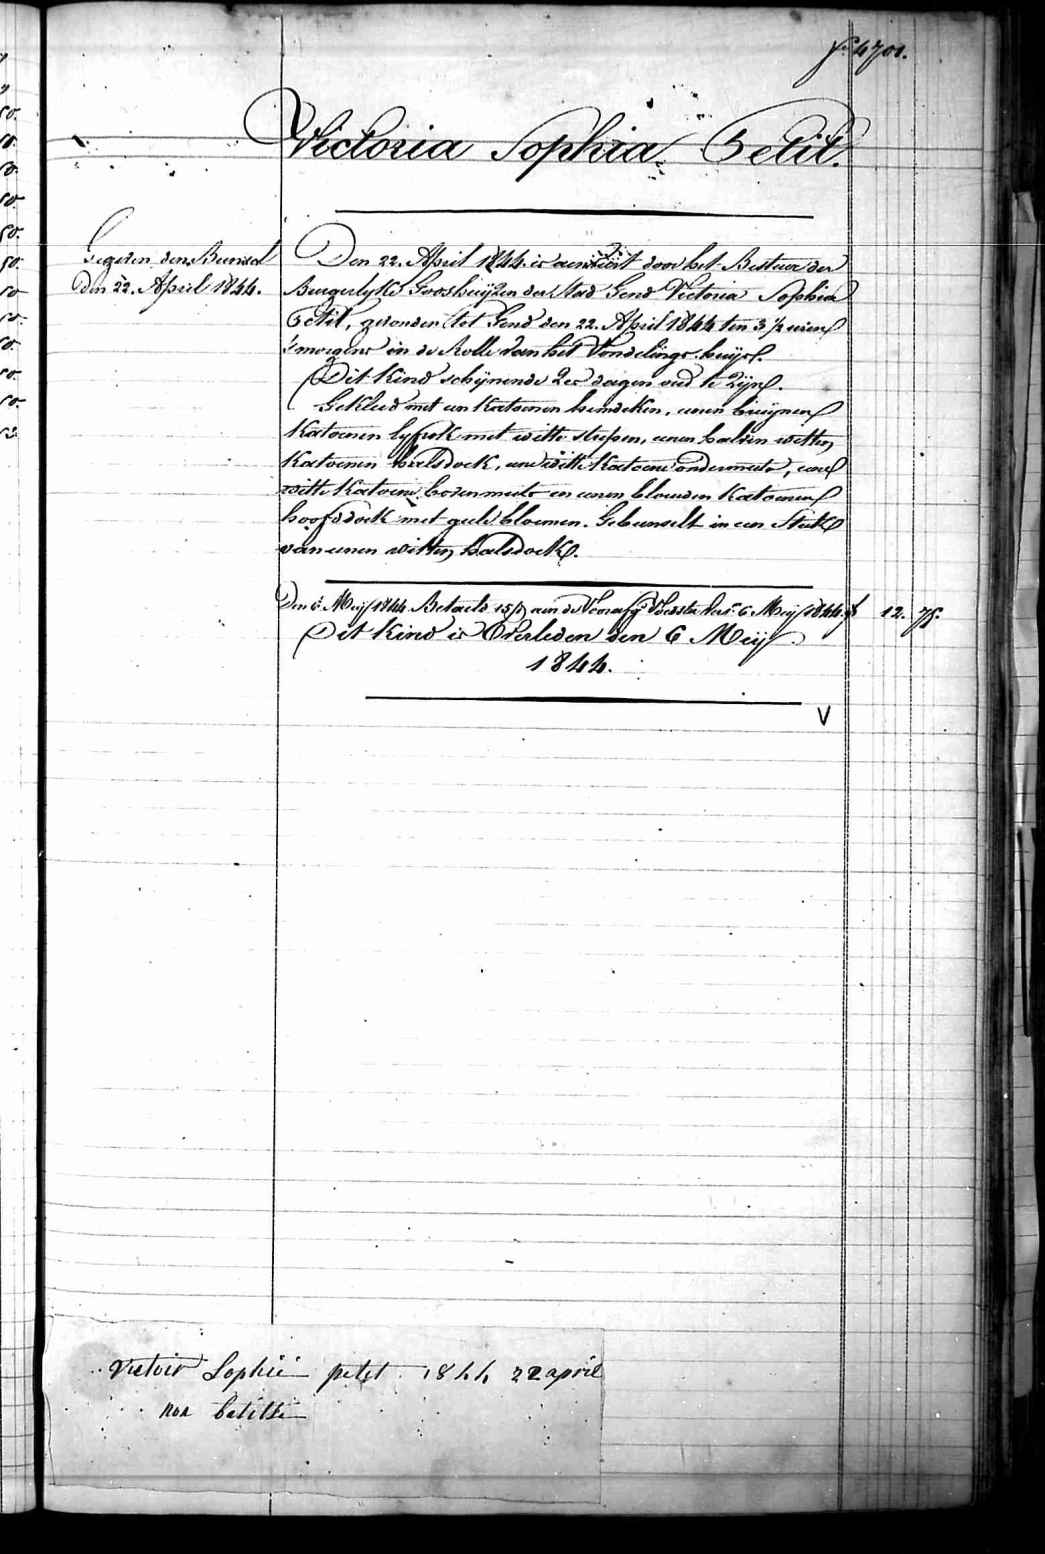 fo 4701.
Victoria Sophia Petit.
Gegeven den Bundel
den 22. April 1844.
Den 22. April 1844 is aenveird door het Bestuur der
Burgerlyke Godshuijzen der Stad Gend Victoria Sophia
Petit, gevonden tot Gend den 22. April 1844 ten 3 ½ uren
's morgens in de Rolle van het Vondelings-huijs.
Dit Kind schijnende 2 dagen oud te Zijn.
Gekleed met een Katoenen hemdeken, eenen bruijnen
Katoenen lyfrok met witte strepen, eenen halven witten
Katoenen halsdoek, eene witte Katoene ondermuts, eene
witte Katoene bovenmuts en eenen blauwen Katoenen
hoofddoek met geele bloemen. Gebunselt in een Stuk
van eenen witten halsdoek.
Den 6 Meij 1844 Betaeld 15 aen de 6 Meij 1844 f 12. 75.
Dit Kind is Overleden den 6 Meij
1844.
V
Victoir Sophie petit 1844 22 april
non batisse